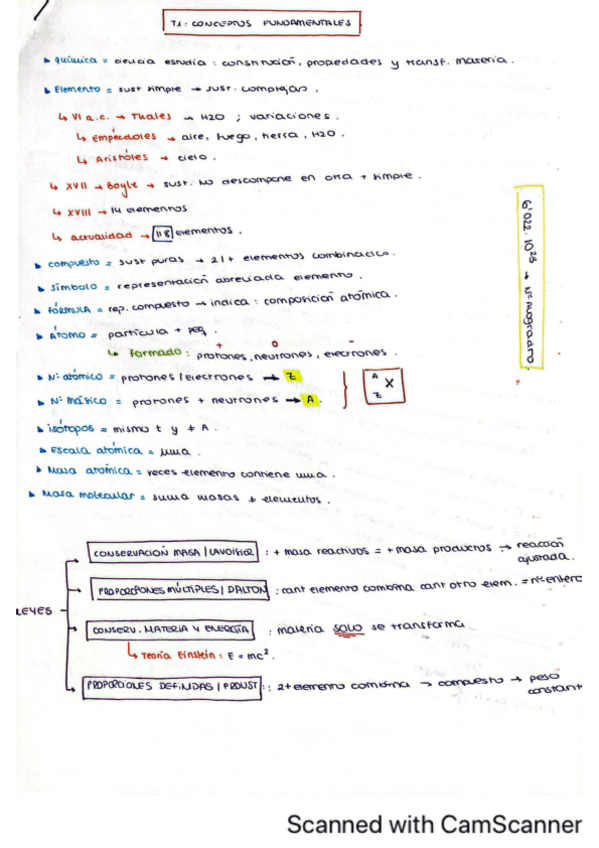 T.1: CONCEPTOS FUNDAMENTALES
química = ciencia estudia: constitución, propiedades y transf. materia.
Elemento = sust simple → sust. complejas.
↳ VI a.c. → Thales → H2O ; variaciones.
↳ Empédoles → aire, fuego, tierra, H2O.
↳ Aristóles → cielo.
↳ XVII → Boyle → sust. NO descompone en otra + simple.
↳ XVIII → 14 elementos
↳ actualidad → 118 elementos.
6'022·10²³ → Nº Avogadro.
compuesto = sust puras → 2/+ elementos combinados.
símbolo = representación abreviada elemento.
FÓRMULA = rep. compuesto → indica: composición atómica.
Átomo = partícula + peq.
↳ Formado: protones, neutrones, electrones.
+ 0 -
Nº atómico = protones / electrones → Z
Nº másico = protones + neutrones → A.
A
X
Z
isótopos = mismo t y ≠ A.
Escala atómica = uma.
Masa atómica = veces elemento contiene uma.
Masa molecular = suma masas ≠ elementos.
LEYES
CONSERVACIÓN MASA / LAVOISIER : + masa reactivos = + masa productos → reacción
ajustada.
PROPORCIONES MÚLTIPLES / DALTON : cant elemento combina cant otro elem. = nº entero
CONSERV. MATERIA Y ENERGÍA : materia SOLO se transforma
↳ Teoría Einstein: E = mc².
PROPORCIOLES DEFINIDAS / PROUST : 2 + elemento combina → compuesto → peso
constant
Scanned with CamScanner